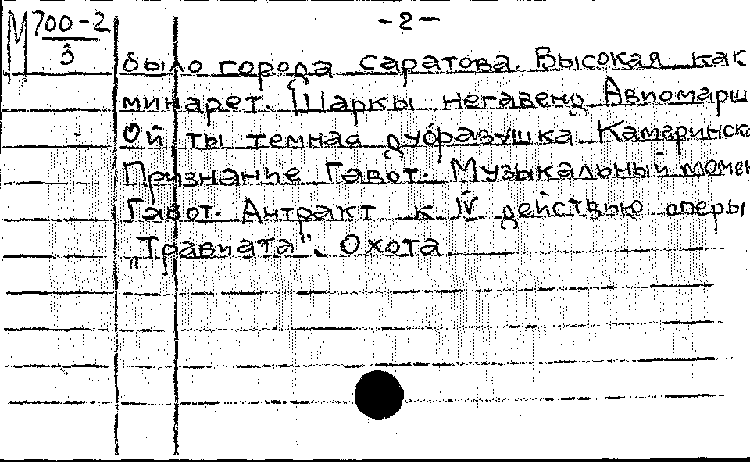 М 700-2
3
-2-
было города Саратова. Высокая как
минарет. Шаркы негавено Автомарш
Ой ты темная дубравушка Камаринска
Признание Гавот. Музыкальный момен
Гавот. Антракт к IV действию оперы
„Травиата". Охота.